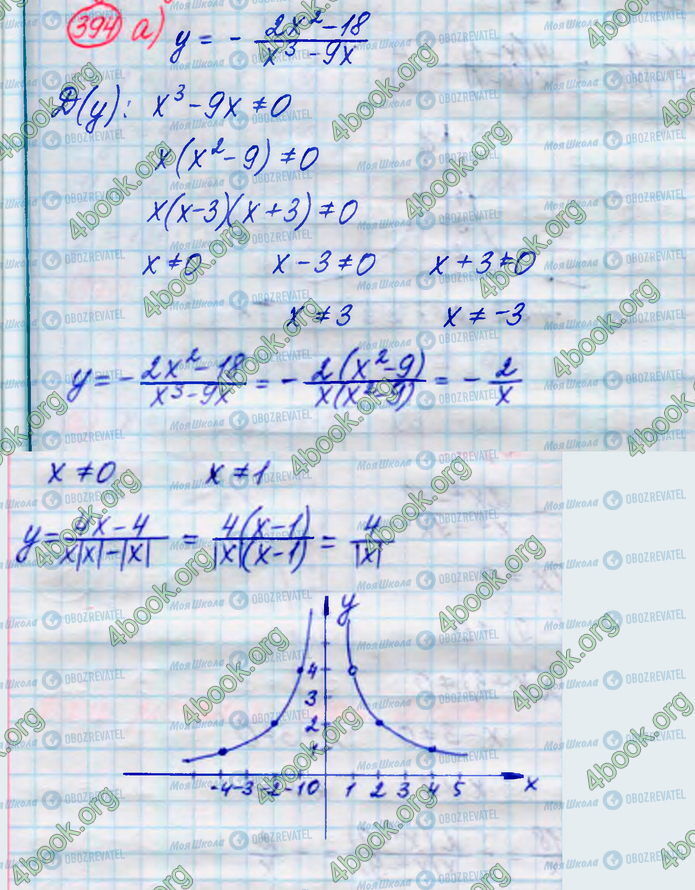 394 а) y = - 2x² - 18 / x³ - 9x
D(y): x³ - 9x ≠ 0
x(x² - 9) ≠ 0
x(x - 3)(x + 3) ≠ 0
x ≠ 0 x - 3 ≠ 0 x + 3 ≠ 0
x ≠ 3 x ≠ -3
y = - 2x² - 18 / x³ - 9x = - 2(x² - 9) / x(x² - 9) = - 2 / x
x ≠ 0 x ≠ 1
y = 4x - 4 / x|x| - |x| = 4(x - 1) / |x|(x - 1) = 4 / |x|
y
4
3
2
1
-4 -3 -2 -1 0 1 2 3 4 5 x
4book.org
Моя Школа OBOZREVATEL